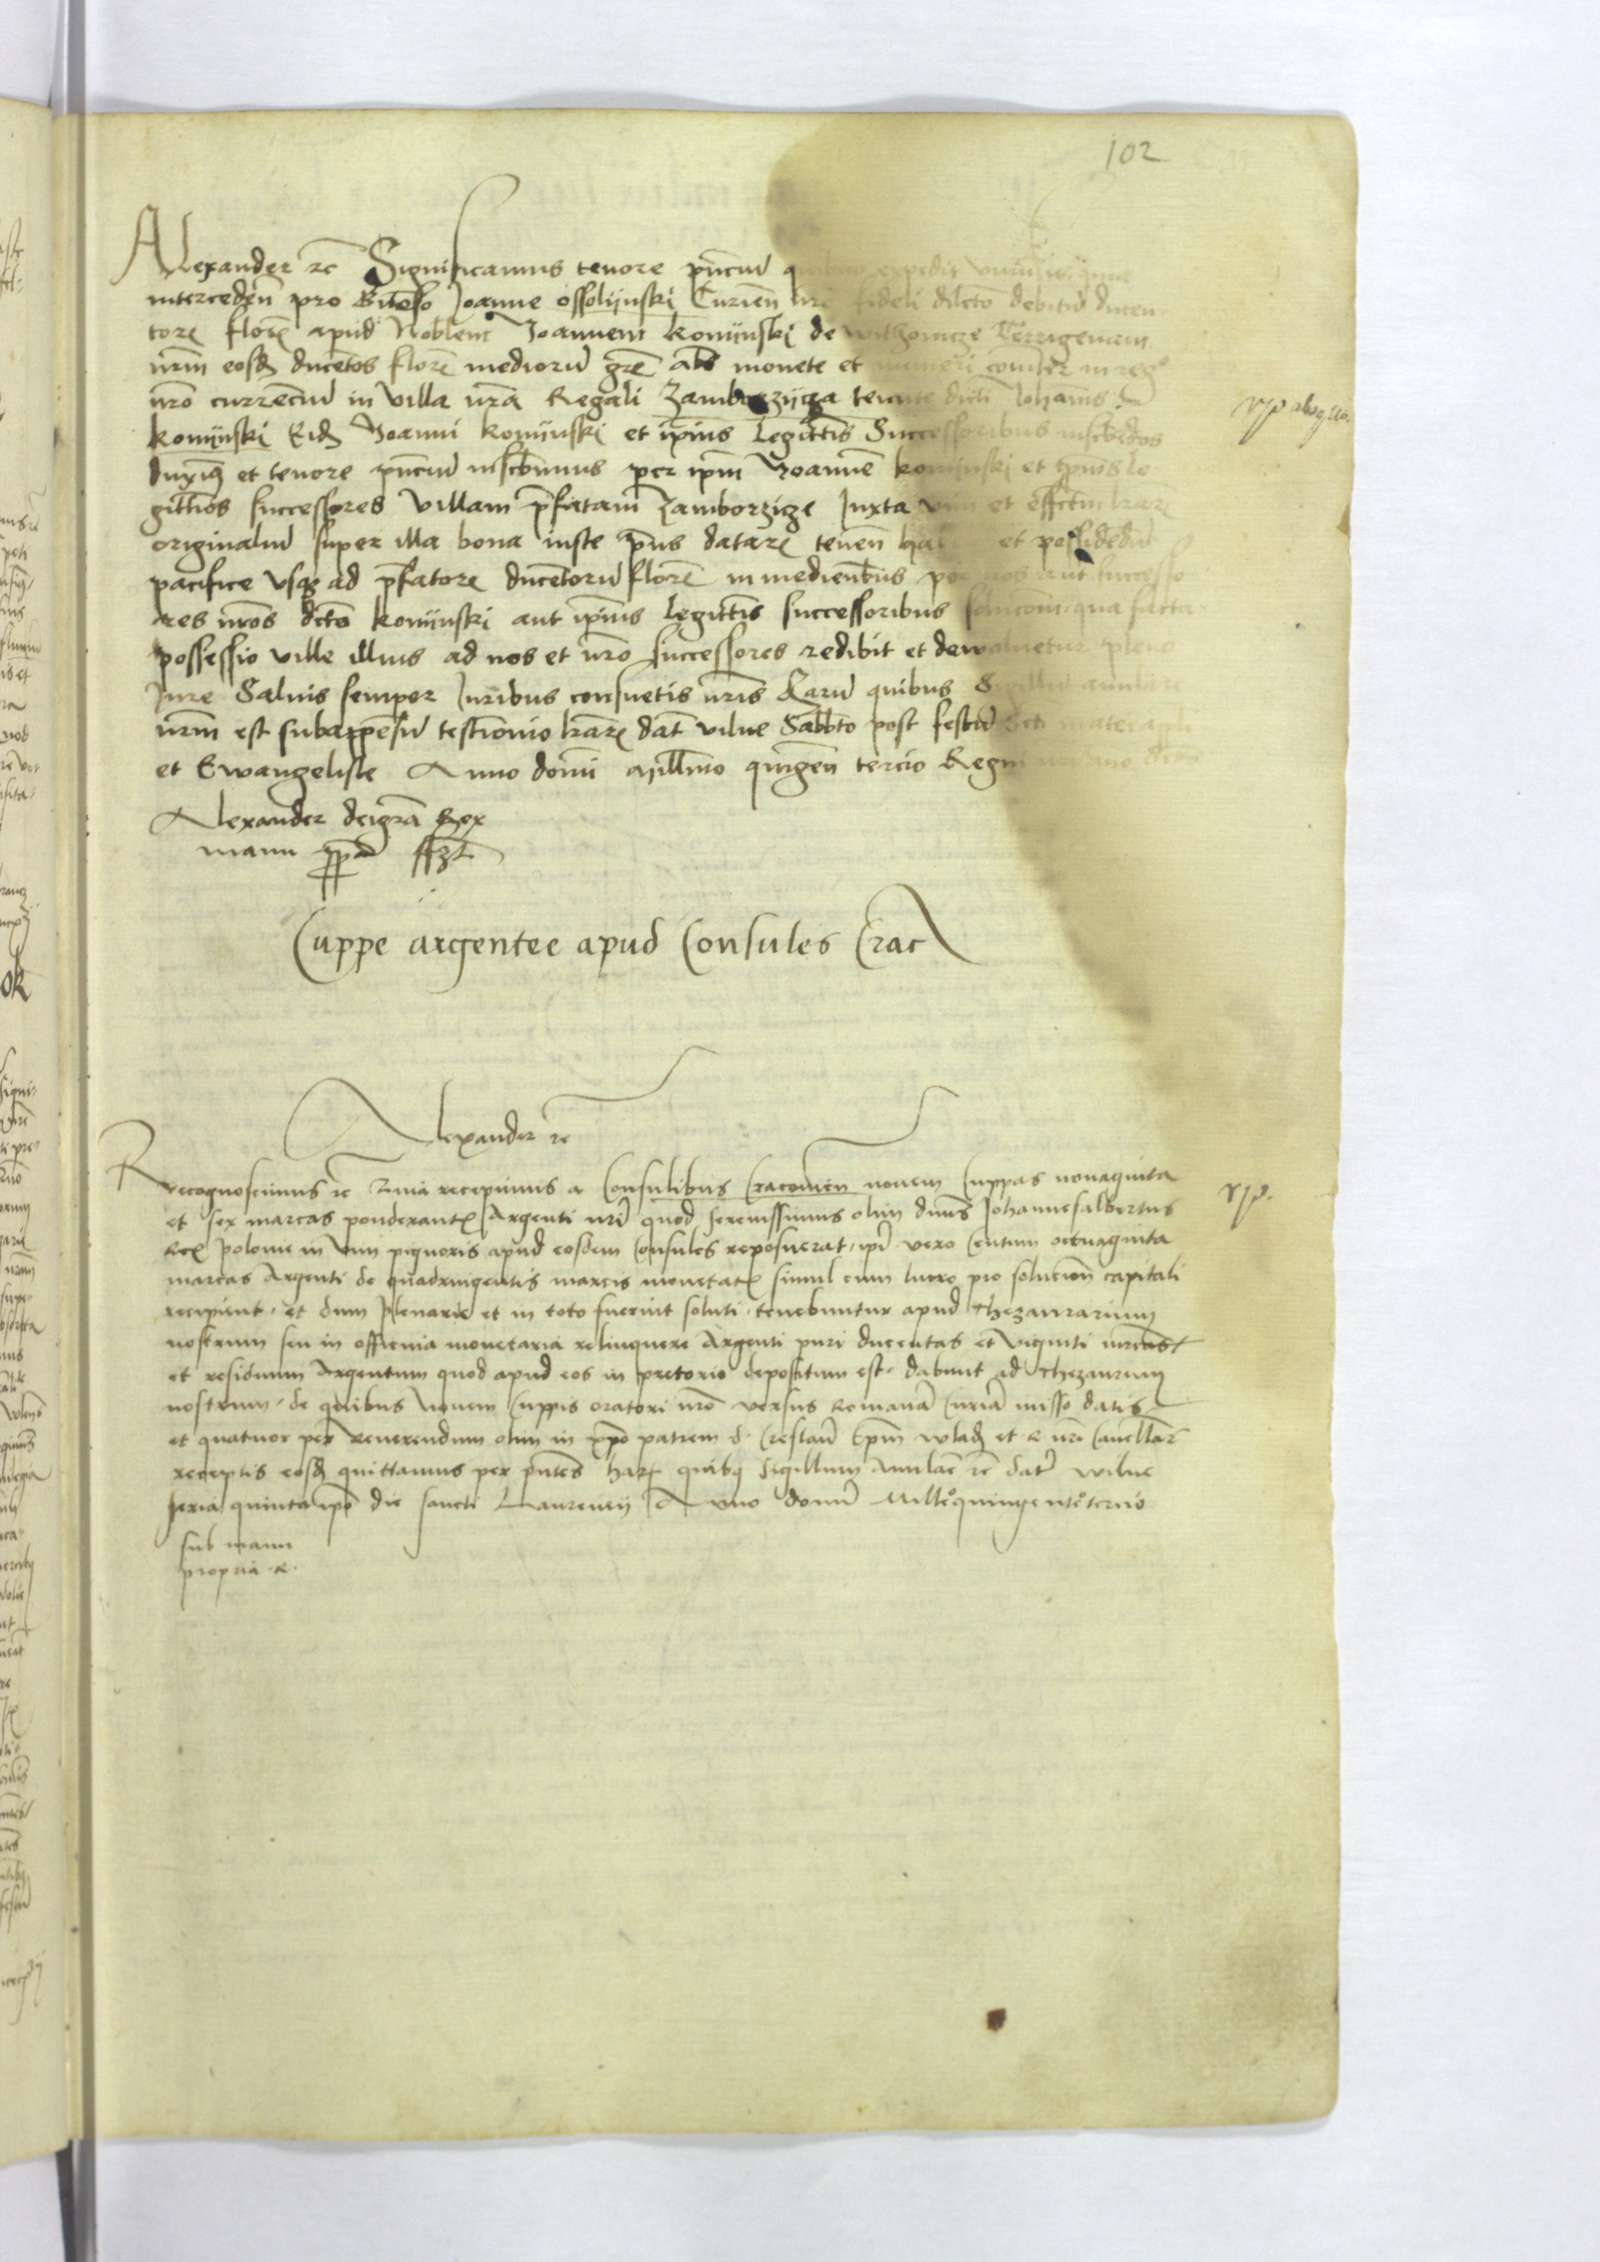 102
Alexander rc Significamus tenore pñciũ quibus expedit vniũsis quia
intercedeñ pro Gñoso Joanne Ossolijnski Curieñ nro fideli dilcto debitũ ducen
torȝ florȝ apud Noblem Joannem Komijnski de Terrigenam
nrm̃ eosdȝ ducẽtos florȝ mediorũ grȝ albȝ monete et numeri cõmuniter in reg°
nr̃o currẽciũ in villa nr̃a Regali Zamborzijcza tenute dicti Johanis
Komijnski Eidȝ Joanni Komijnski et ip̃ius legittĩs Successoribus inscribẽdos
duximȝ et tenore pñciũ inscribimus per ip̃m Joannẽ Komijnski et ip̃ius le
gittĩos successores villam p̃fatam Zamborzicze Juxta vim et effectũ lrarȝ
originaliũ super illa bona iuste p̃us datarȝ teneñ habeñ et possidẽdũ
pacifice vsqȝ ad p̃fatorȝ ducẽtorũ florȝ per nos aut successo
res nr̃os dicto Komijnski aut ip̃ius legittĩs successoribus solucionẽ qua facta
possessio ville illius ad nos et nr̃o successores redibit et dewoluetur pleno
Jure Saluis semper Juribus consuetis nr̃is Harũ quibus Sigillũ anulare
nrm̃ est subappẽsũ testimonio lrarȝ dat̃ vilne Sabbto post festũ Scti mathei apli
et Ewangeliste Anno domĩ Millmo quĩgeñ tercio Regni
Alexander dei gra Rex
manu pp̃a sszt
Cuppe argentee apud Consules Crac
Alexander rc
Recognoscimus rc Quia recepimus a Consulibus Cracouieñ nouem Cuppas nonaginta
et sex marcas ponderantȝ Argenti nri quod serenissimus olim dñus Johannesalbertus
Rex Polonie in vim pignoris apud eosdem Consules reposuerat, ipi vero Centum octuaginta
marcas Argenti de quadringentis marcis monetatȝ simul cum lucro pro solucioñ capitali
recipiunt, et dum plenarie et in toto fuerint soluti, tenebuntur apud Thezaurarium
nostrum seu in officina monetaria relinquere Argenti puri ducentas et viginti mrcas,
et residuum Argentum quod apud eos in pretorio depositum est, dabunt ad Thezaurum
nostrum, de quibus nouem Cuppis oratori nro versus Romanã Curiã misso datis
et quatuor per Reuerendum olim in xpo patrem d. Creslaũ Epm wladȝ et R nri Cancellar
receptis eosdȝ quittamus per pñtes harȝ quibȝ sigillum Anulare rc datȝ wilne
feria quinta ipo die sancti Laurencij Anno domi Millo quingentotercio
sub manu
propria R.